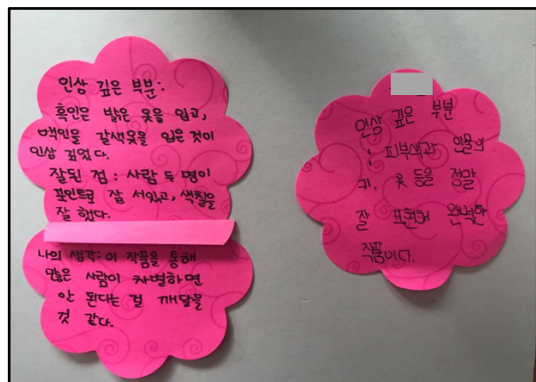 인상 깊은 부분:
흑인은 밝은 옷을 입고,
백인을 갈색옷을 입은것이
인상 깊었다.
잘된 점: 사람 두 명이
포인트로 잘 서있고, 색칠을
잘 했다.
나의 생각: 이 작품을 통해
많은 사람이 차별하면
안 된다는 걸 깨달을
것 같다.
인상 깊은 부분
: 피부색과 인물의
귀, 옷 등을 정말
잘 표현해 완벽한
작품이다.